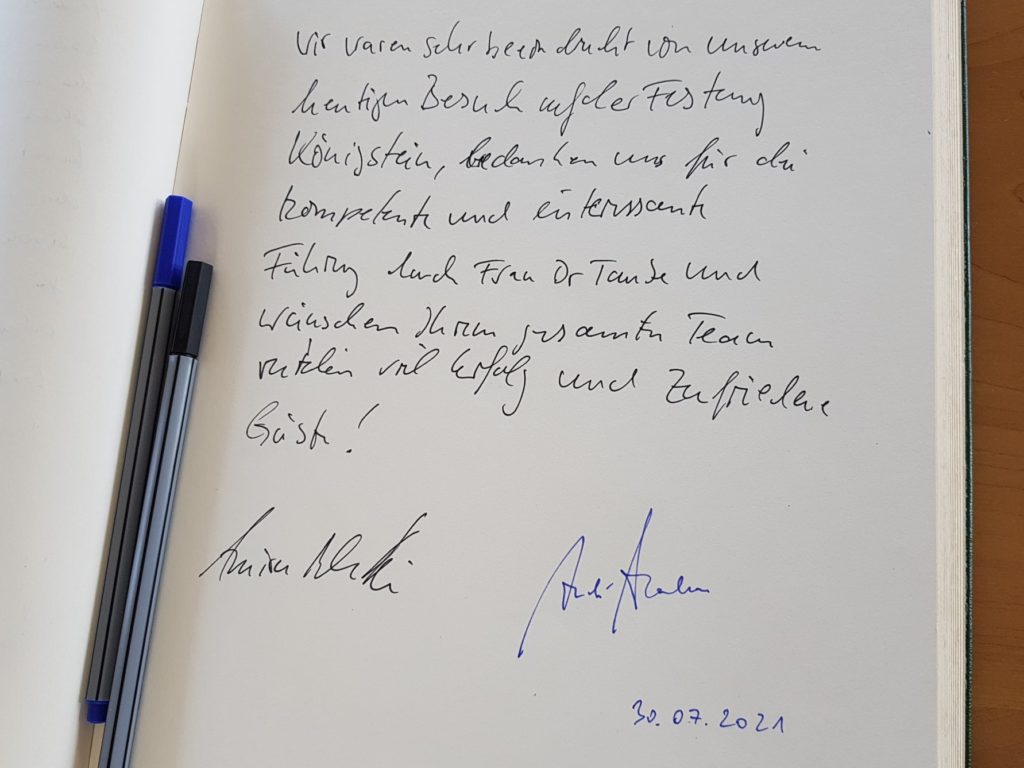 Wir waren sehr beeindruckt von unserem
heutigen Besuch auf der Festung
Königstein, bedanken uns für die
kompetente und interessante
Führung durch Frau Dr Taube und
wünschen Ihrem gesamten Team
weiterhin viel Erfolg und zufriedene
Gäste!
30.07.2021